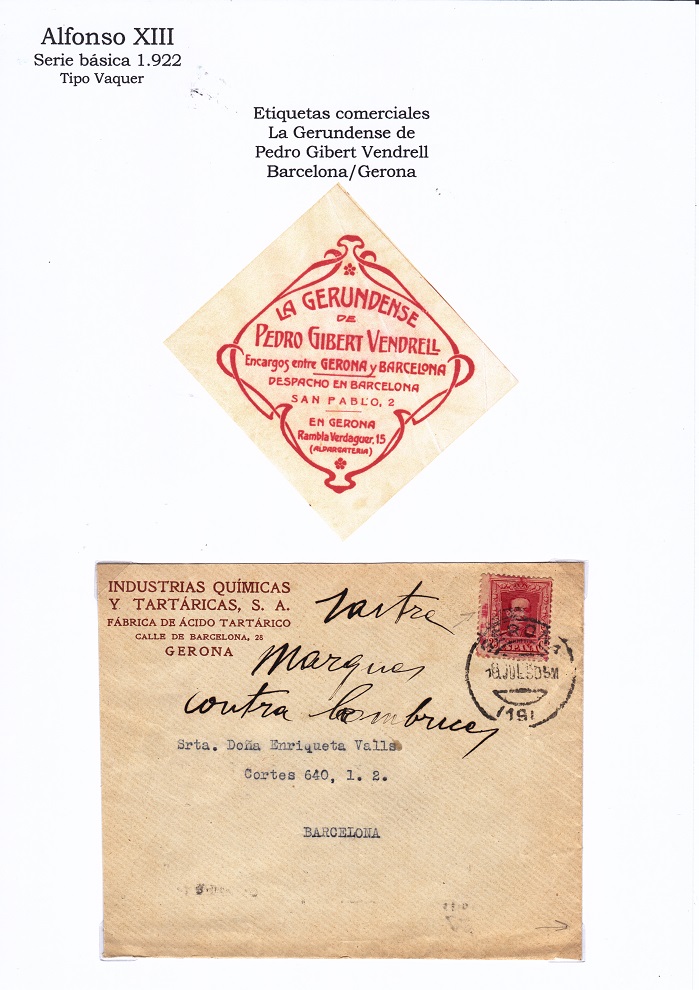 Alfonso XIII
Serie básica 1.922
Tipo Vaquer
Etiquetas comerciales
La Gerundense de
Pedro Gibert Vendrell
Barcelona/Gerona
LA GERUNDENSE
DE
PEDRO GIBERT VENDRELL
Encargos entre GERONA y BARCELONA
DESPACHO EN BARCELONA
SAN PABLO, 2
EN GERONA
Rambla Verdaguer, 15
(ALPARGATERIA)
INDUSTRIAS QUÍMICAS
Y TARTÁRICAS, S. A.
FÁBRICA DE ÁCIDO TARTÁRICO
CALLE DE BARCELONA, 28
GERONA
sastre
Marques
contra
Srta. Doña Enriqueta Valls
Cortes 640, 1. 2.
BARCELONA